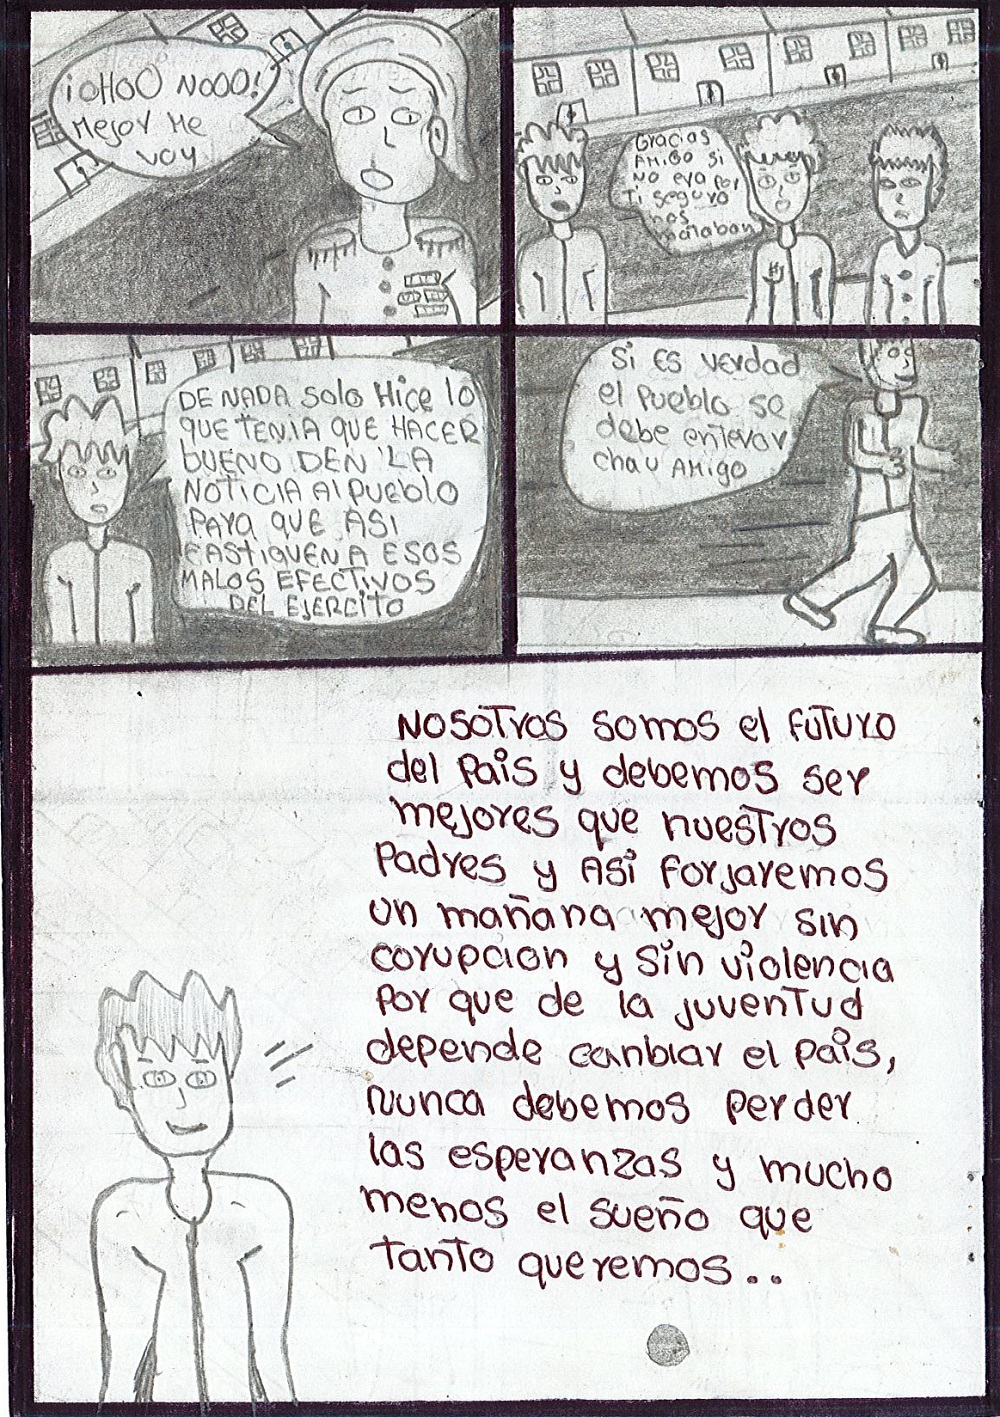 ¡OHOO NOOO!
Mejor Me
voy
Gracias
AMIGO si
NO era por
Ti seguro
nos
mataban
DE NADA Solo Hice lo
QUE TENIA QUE HACER
BUENO DEN LA
NOTICIA Al PUEBLO
PARA QUE ASI
CASTIQUEN A ESOS
MALOS EFECTIVOS
DEL EJERCITO
Si ES verdad
el Pueblo se
debe enterar
chau AMigo
NOSOTros somos el FUTURO
del Pais y debemos ser
mejores que nuestros
Padres y Asi Forjaremos
un mañana mejor sin
corupcion y Sin violencia
Por que de la juventud
depende canbiar el Pais,
Nunca debemos Perder
las esperanzas y mucho
menos el sueño que
tanto queremos..